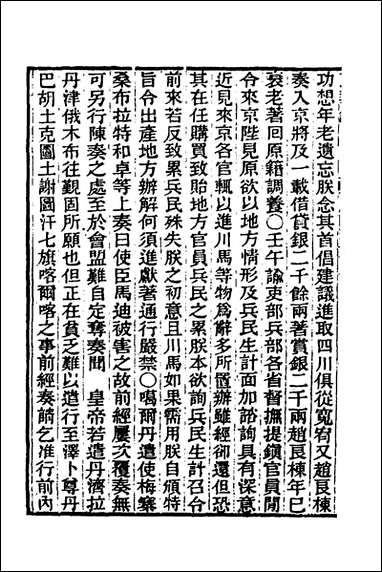 功想年老遺忘朕念其首倡建議進取四川俱從寬宥又趙良棟
奏入京將及一載借貸銀二千餘兩著賞銀二千兩趙良棟年已
衰老著回原籍調養○壬午諭吏部兵部各省督撫提鎮官員聞
令來京陛見原欲以地方情形及兵民生計面加諮詢具有深意
近見來京各官輒以進川馬等物爲辭多所置辦雖經卻還但恐
其在任購買致貽地方官員兵民之累朕本欲詢兵民生計召令
前來若反致累兵民殊失朕之初意且川馬如果需用朕自頒特
旨令出產地方辦解何須進獻著通行嚴禁○噶爾丹遣使梅寨
桑布拉特和卓等上奏曰使臣馬迪被害之故前經屢次覆奏無
可另行陳奏之處至於會盟難自定奪奏聞　皇帝若遣丹濟拉
丹津俄木布往覲固所願也但正在貧乏難以遣行至澤卜尊丹
巴胡土克圖土謝圖汗七旗喀爾喀之事前經奏請乞准行前內